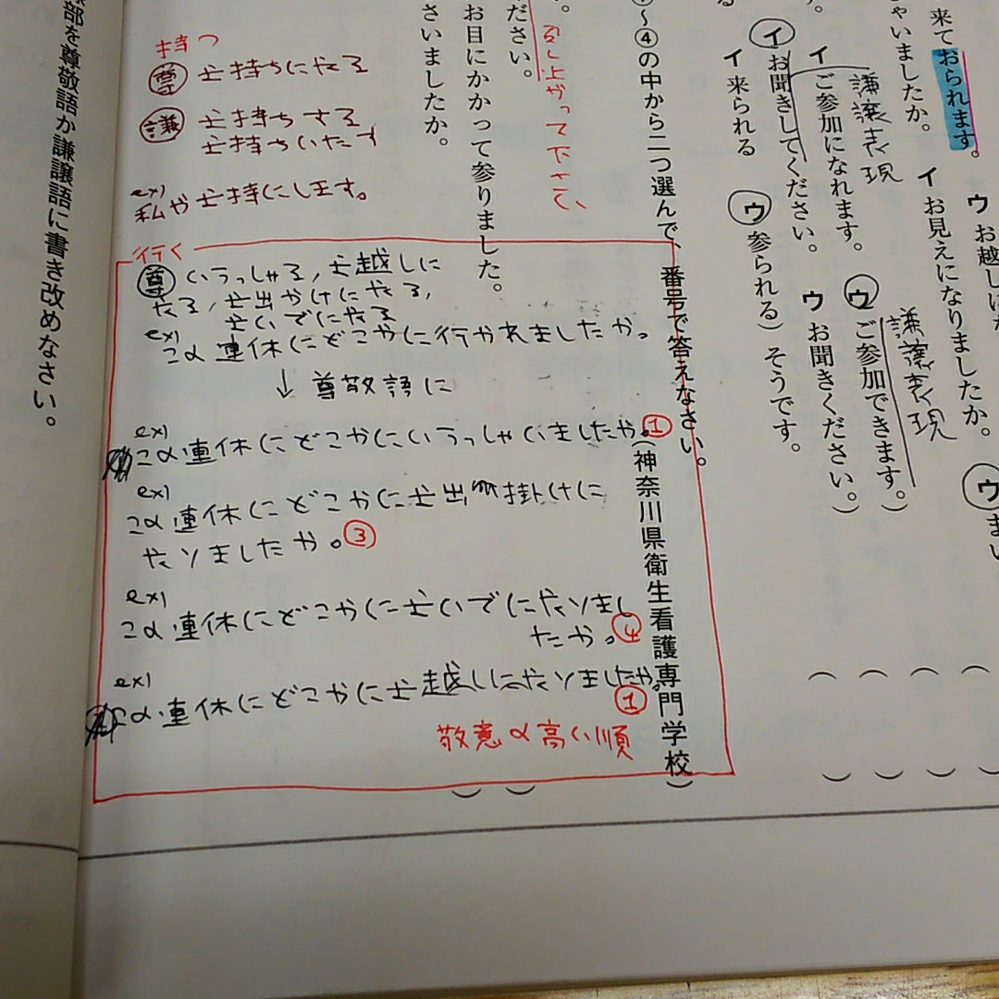 来ておられます。
ウ お越しに
ゃいましたか。
イ お見えになりましたか。
ウ
謙譲表現
イ ご参加になれます。
ウ ご参加できます。）
謙譲表現
イ お聞きしてください。
ウ お聞きください。）
イ 来られる
ウ 参られる）そうです。
～④の中から二つ選んで、番号で答えなさい。（神奈川県衛生看護専門学校）
ださい。
お目にかかって参りました。
さいましたか。
持つ
尊 お持ちになる
謙 お持ちする
お持ちいたす
ex)
行く
尊 いらっしゃる，お越しに
なる，お出かけになる，
おいでになる
ex)
この連休にどこかに行かれましたか。
↓ 尊敬語に
ex)
この連休にどこかにいらっしゃいましたか。①
ex)
この連休にどこかにお出掛けに
なりましたか。③
ex)
この連休にどこかにおいでになりまし
たか。④
ex)
この連休にどこかにお越しになりましたか。①
敬意の高い順
部を尊敬語か謙譲語に書き改めなさい。